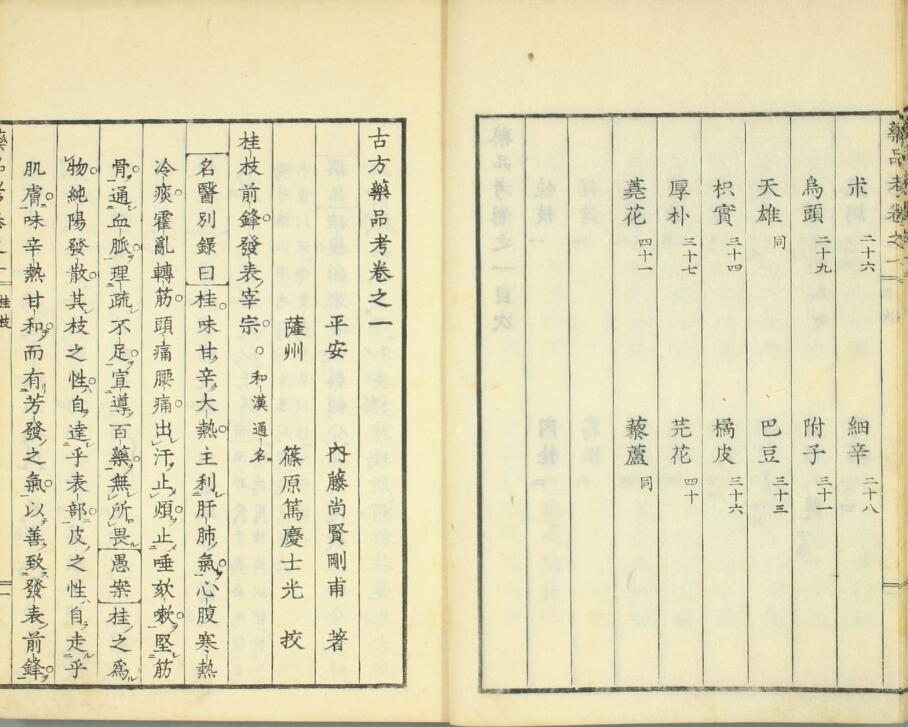 朮 二十六 細辛 二十八
烏頭 二十九 附子 三十一
天雄 同 巴豆 三十三
枳實 三十四 橘皮 三十六
厚朴 三十七 芫花 四十
蕘花 四十一 藜蘆 同
古方藥品考卷之一
平安 內藤尚賢剛甫 著
薩州 篠原篤慶士光 挍
桂枝前鋒發表宰宗○和漢通名
名醫別錄曰桂味甘辛大熱主利肝肺氣心腹寒熱
冷痰霍亂轉筋頭痛腰痛出汗止煩止唾欬嗽堅筋
骨通血脈理疏不足宜導百藥無所畏愚案桂之爲
物純陽發散其枝之性自達乎表部皮之性自走乎
肌膚味辛熱甘和而有芳發之氣以善致發表前鋒
桂枝